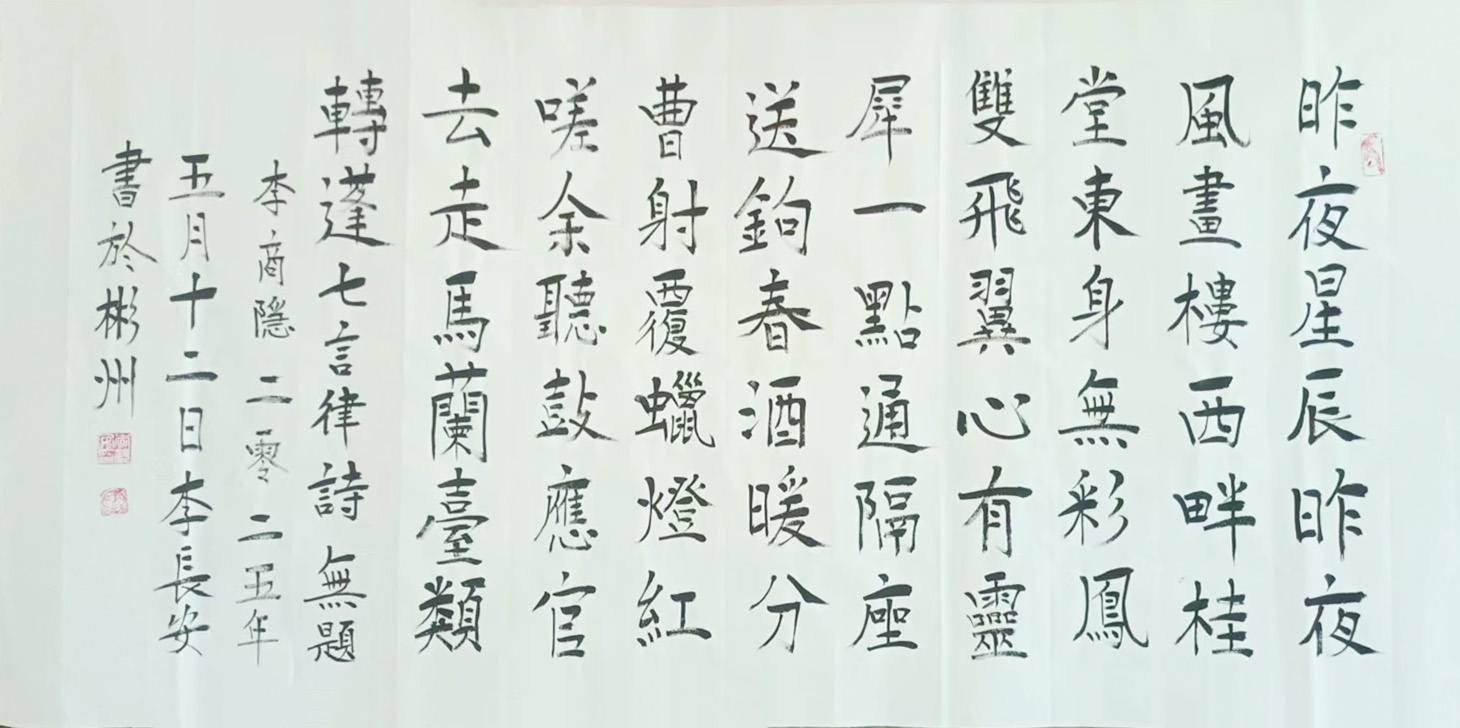 昨夜星辰昨夜
風畫樓西畔桂
堂東身無彩鳳
雙飛翼心有靈
犀一點通隔座
送鉤春酒暖分
曹射覆蠟燈紅
嗟余聽鼓應官
去走馬蘭臺類
轉蓬七言律詩 無題
李商隱 二零二五年
五月十二日李長安
書於彬州